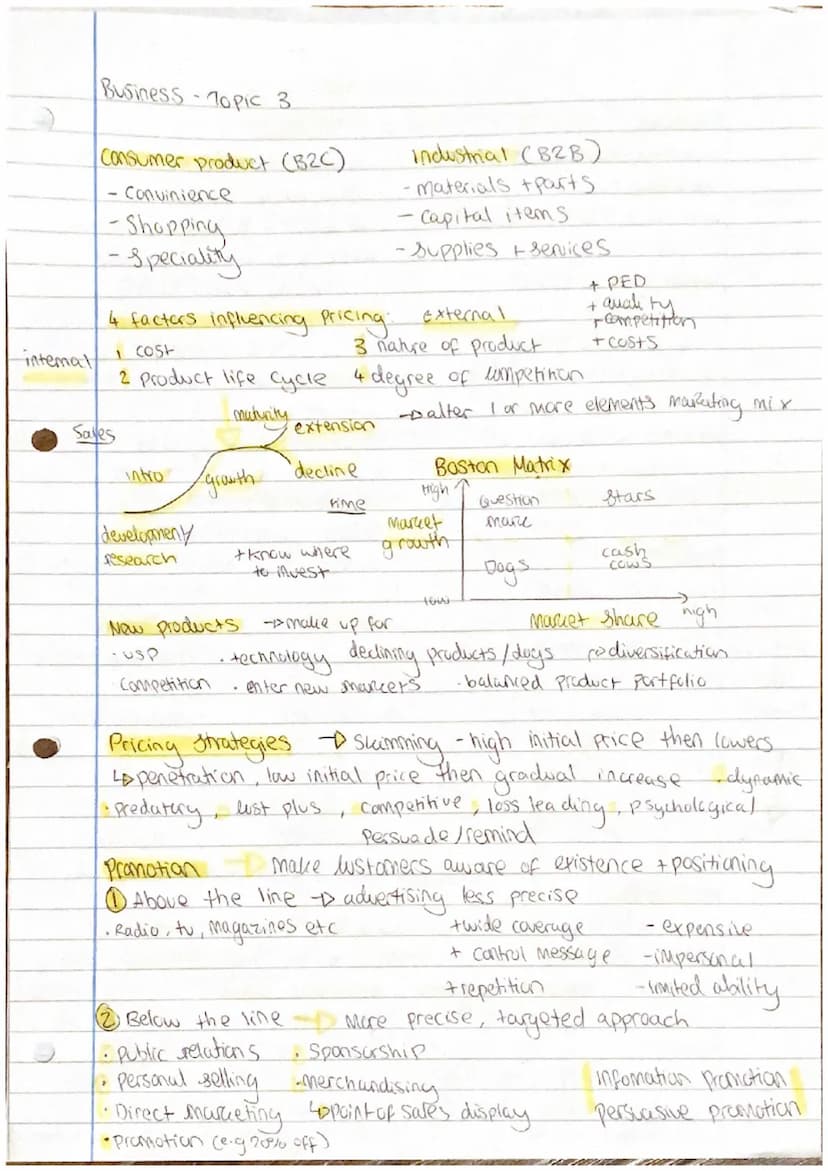 Business - Topic 3
Consumer product (B2C) Industrial (B2B)
- Convinience - materials + parts
- Shopping - capital items
- Speciality - supplies + services
+ PED
4 factors influencing pricing: external + quality
+ competition
internal 1 cost 3 nature of product + costs
2 Product life cycle 4 degree of competition
maturity → alter 1 or more elements marketing mix
Sales extension
intro growth decline Boston Matrix
time High Question mark Stars
development/ research market growth
+ know where to invest Dogs cash cows
low
New products → make up for Market Share high
· USP · technology declining products/dogs diversification
Competition · enter new markets · balanced product portfolio
Pricing strategies → Skimming - high initial price then lowers
↳ penetration, low initial price then gradual increase · dynamic
· predatory, cost plus, competitive, loss leading, psychological
Persuade/remind
Promotion → make customers aware of existence + positioning
1 Above the line → advertising less precise
· Radio, tv, magazines etc +wide coverage - expensive
+ control message - impersonal
+ repetition - limited ability
2 Below the line → More precise, targeted approach
· Public relations · Sponsorship
· Personal selling · merchandising Infomation promotion
· Direct marketing ↳ point of sales display Persuasive promotion
· Promotion (e.g 20% off)